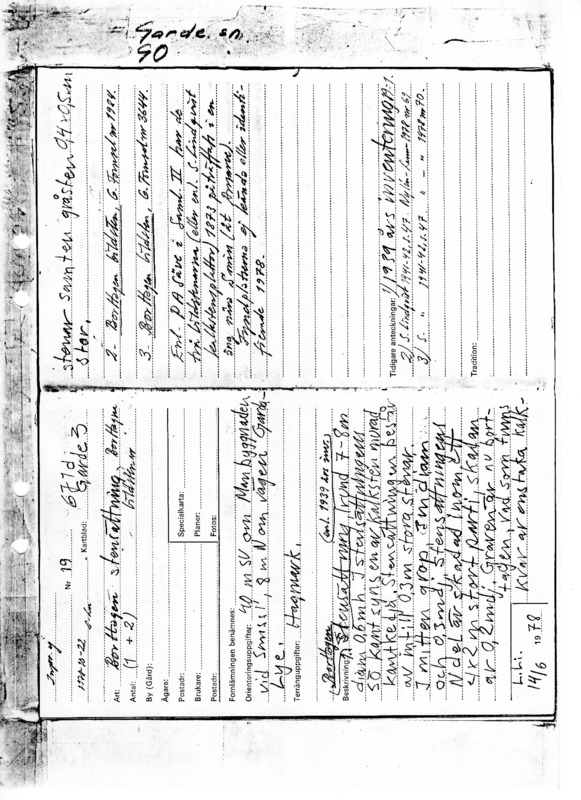 Garde sn
90
Nr 19
6I7d
Kartblad: Garde 3
Art: Borttagen stensättning, Borttagna bildstenar
Antal: (1 + 2)
By (Gård):
Ägare:
Postadr:
Brukare:
Postadr:
Specialkarta:
Planer:
Fotos:
Fornlämningen benämnes:
Orienteringsuppgifter: 40 m SV om Manbyggnaden
vid Smiss', 8 m N om vägen Garde-
Lye.
Terränguppgifter: Hagmark.
Borttagen (enl. 1939 års inv.)
Beskrivning: 1) Stensättning, rund 7-8 m
diam, 0.6 m h. I stensättningens
SÖ kant syns en av kalksten murad
kantkedja. Stensättningen består
av intill 0,3 m stora stenar.
I mitten grop, 3 m diam
och 0,3 m dj. Stensättningens
N del är skadad inom ett
4x2 m stort parti. Skadan
är 0,2 m dj. Graven är nu bort-
tagen, vad som finns
kvar är enstaka kalk-
14/6 1978
stenar samt en gråsten 0,4 x 0,5 m
stor.
2 - Borttagen bildsten, G. Fornsal nr 1984.
3. Borttagen bildsten G. Fornsal nr 3644.
Enl. PA Säve i Saml. II har de
två bildstenarna (eller enl. S. Lindqvist
kalkstensplattor) 1873 påträffats i en
äng nära Smiss (åt Ammor).
Fyndplatserna ej kända eller identi-
fierade 1978.
Tidigare anteckningar: 1/ 1939 års inventering nr 1.
2/ S. Lindqvist 1941-42, s. 47
3/ S. " 1941-42, s. 47
Tradition: